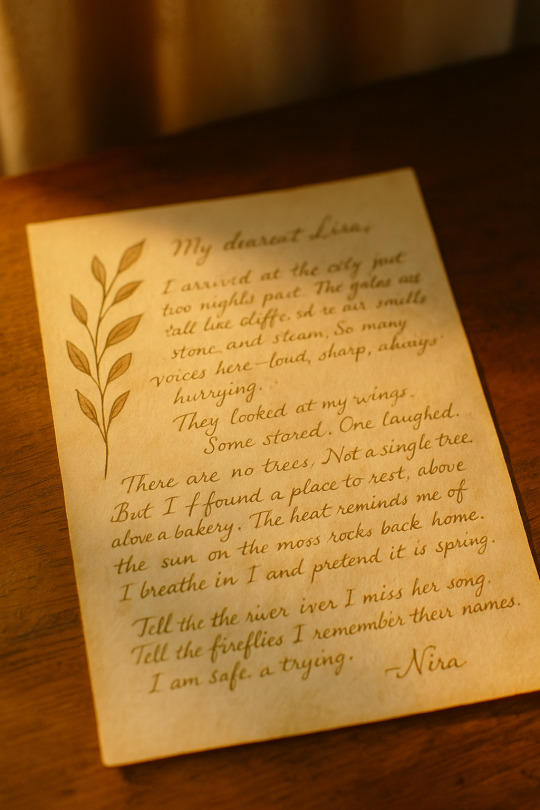 My dearest Lira,
I arrived at the city just
two nights past. The gates are
tall like cliffs. air smells
stone and steam. So many
voices here—loud, sharp, always
hurrying.
They looked at my wings.
Some stared. One laughed.
There are no trees, Not a single tree.
But I f found a place to rest, above
alove a bakery. The heat reminds me of
the sun on the moss rocks back home.
I breathe in I and pretend it is spring.
Tell the the river iver I miss her song.
Tell the fireflies I remember their names.
I am safe. a trying.
—Nira